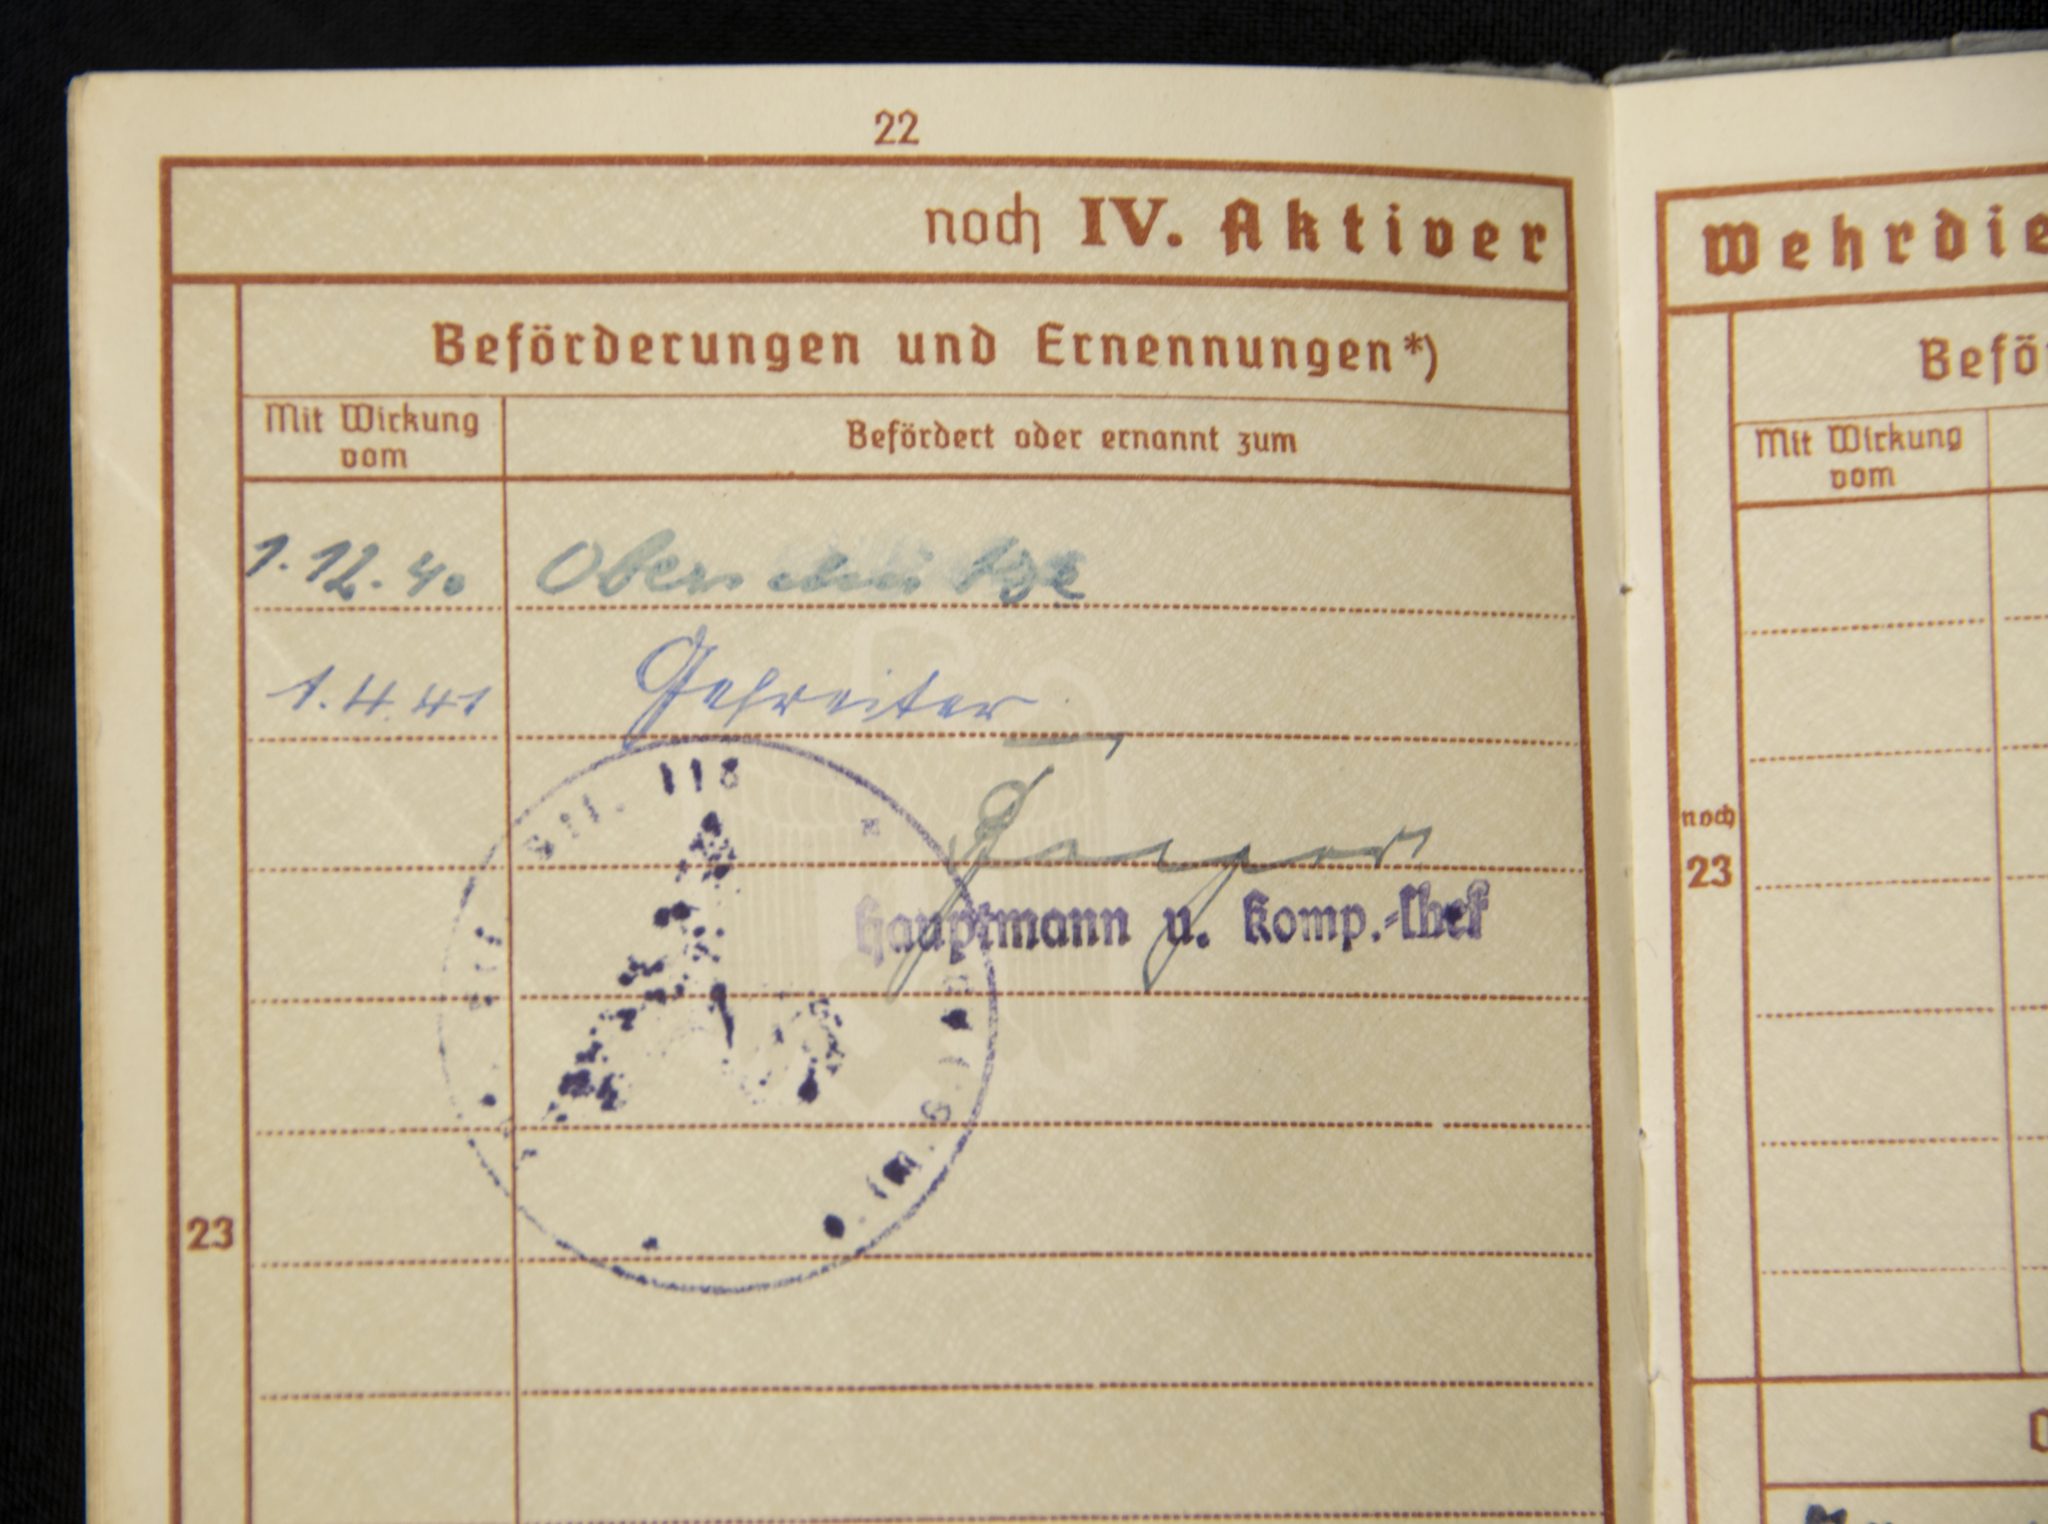 22
noch IV. Aktiver
Beförderungen und Ernennungen*)
Mit Wirkung
vom
Befördert oder ernannt zum
1.12.40 Ober
1.4.41 Gefreiter
118
Hauptmann u. Komp.-Chef
23
Wehrdie
Beför
Mit Wirkung
vom
noch
23